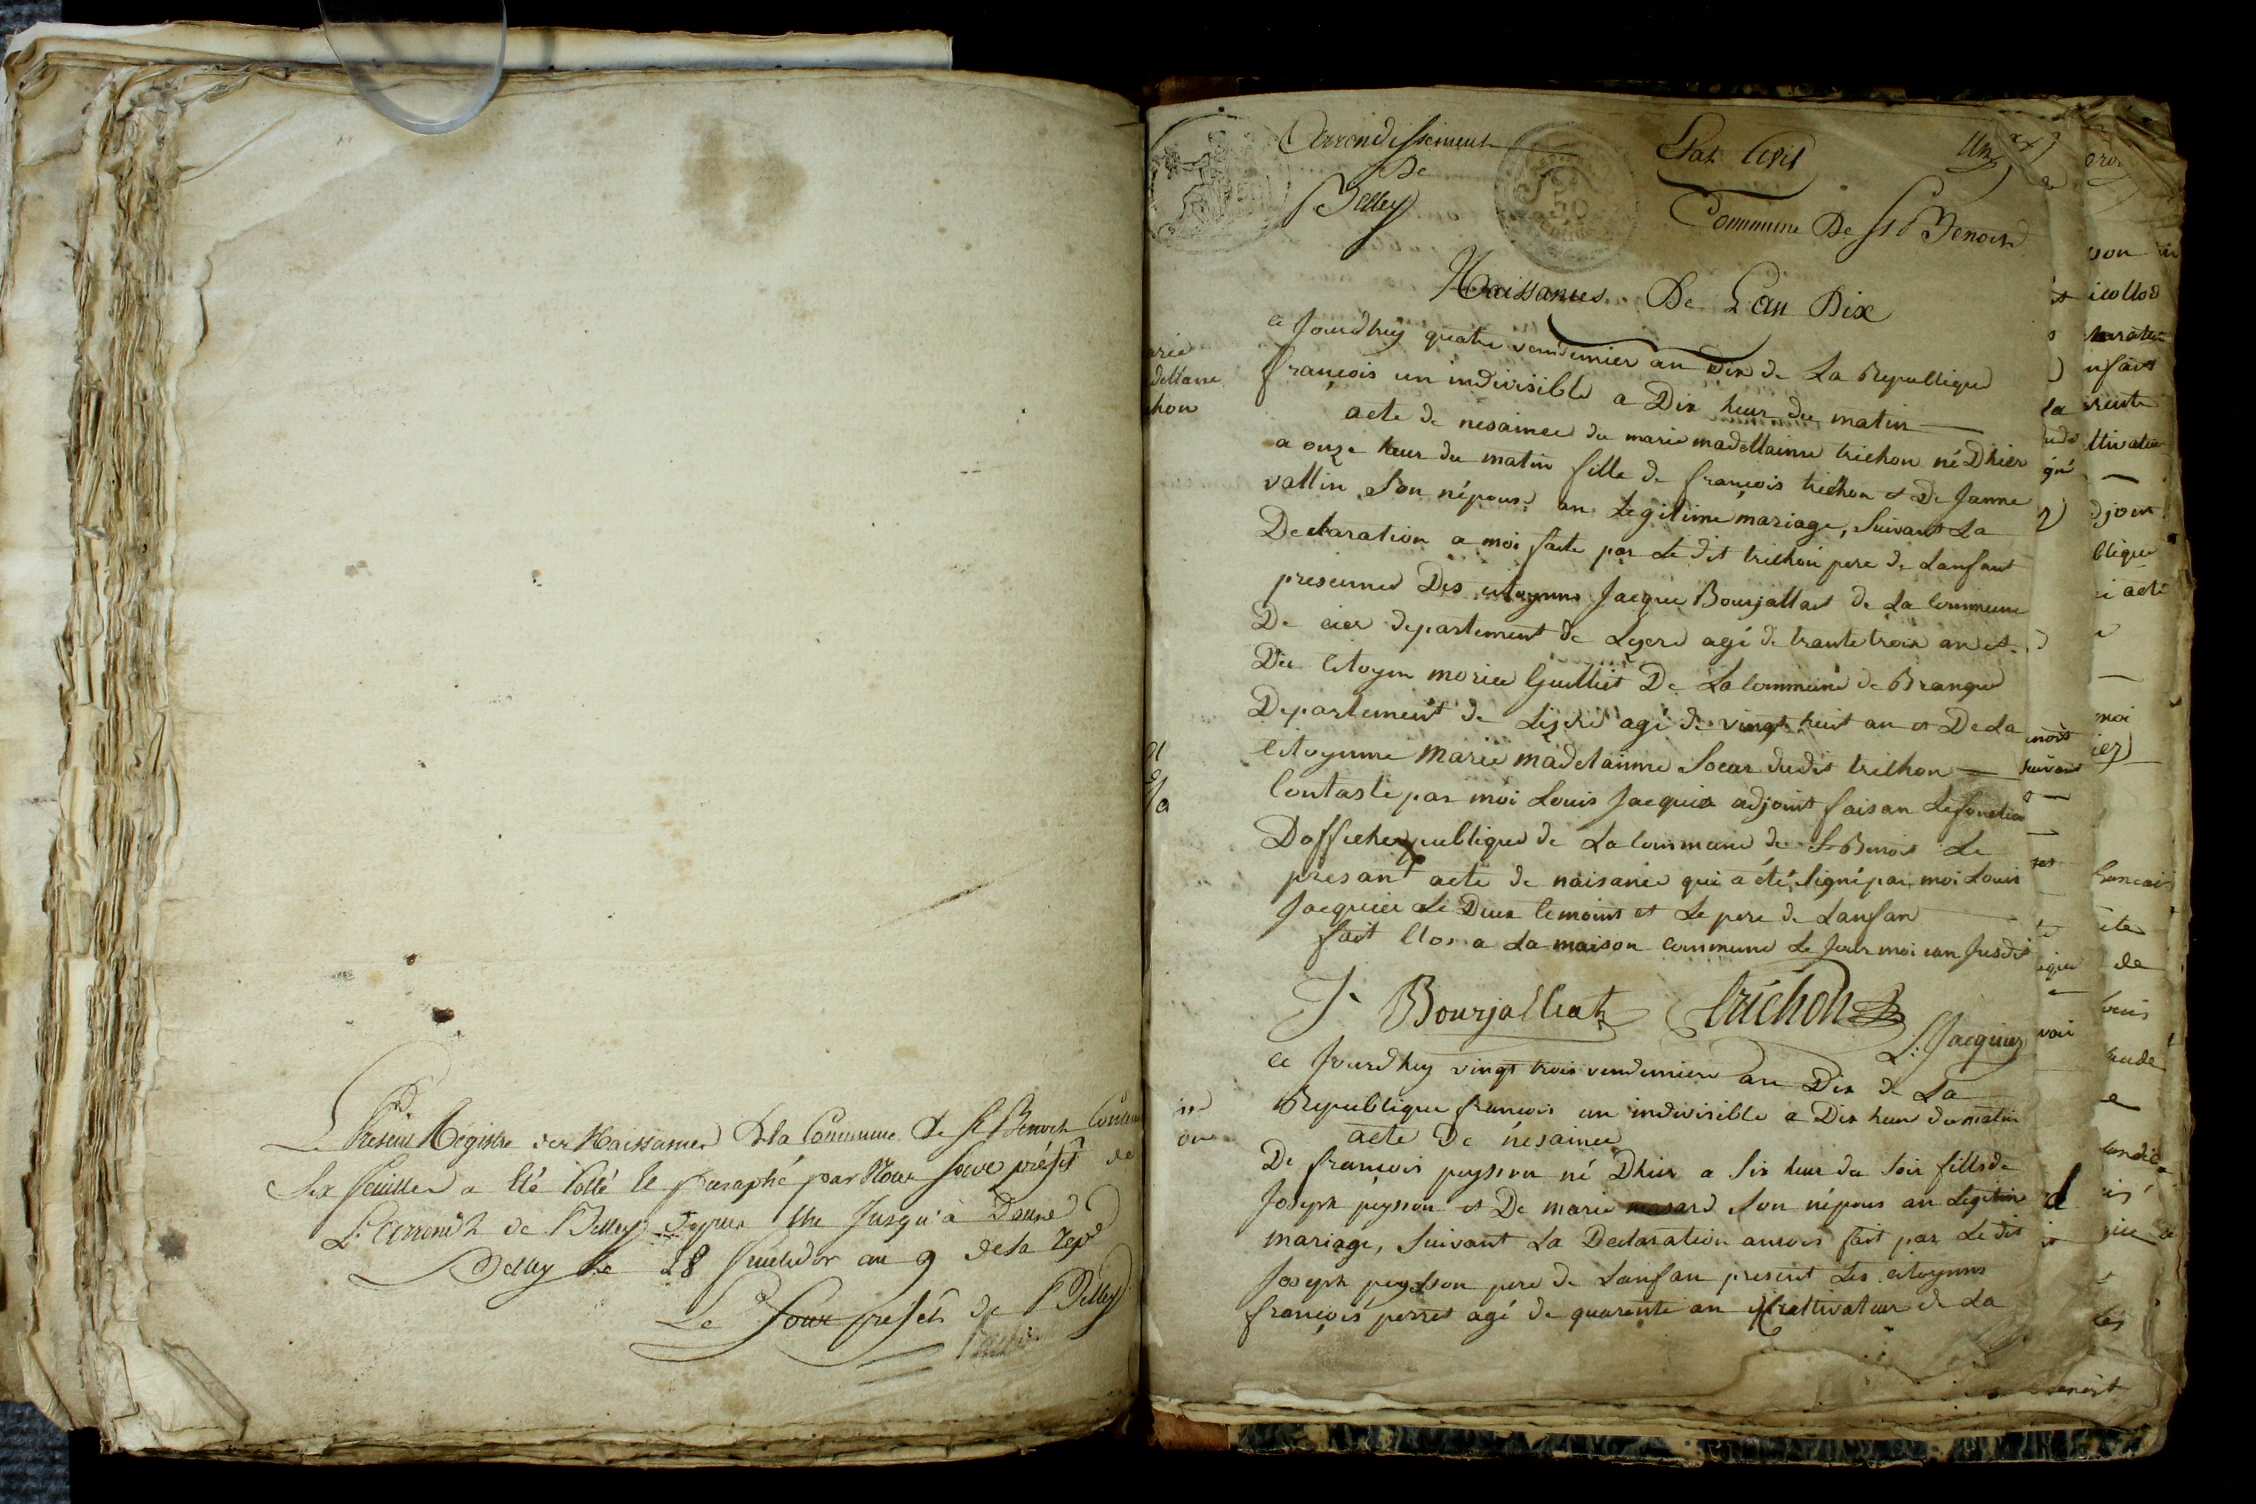 Le Present Registre des Naissances de la Commune de St Benoit
Six feuilles a été Cotté et paraphé par Nous Sous préfet de
L'arrondt de Belley depuis Une Jusqu'à Douse
Belley le 28 fructidor an 9 de la Repe
Le Sous prefet de Belley
Arrondissement
De
Belley
Etat Civil
Un
Commune De St Benoit
50
Naissances De L'an Dix
arie
dellaine
chon
ce Jourdhuy quatre vendemier an Dix de La Republique
françois un indivisible a Dix heur du matin
acte de nesaince du marie madellainne trichon né Dhier
a onze heur du matin fille de françois trichon et De Janne
vallin Son népouse an Legitime mariage, Suivant La
Declaration a moi faite par Le dit trichon pere de Lanfant
presence Des citoyens Jacque Bourjallat de La Commune
De cier departement de Lysere agé de trante trois an et
Du Citoyen morice Guilliet De La Commune de Brangue
Departement de Lisere agé de vingt huit an et De La
Citoyenne Marie madelainne Soeur dudit trichon
Contasté par moi Louis Jacquier adjoint faisan Lefonction
Dofficher publique de La Commune de St Benoit Le
présant acte de naisance qui a été signé par moi Louis
Jacquier Le Deux temoins et Le pere de Lanfan
fait Clos a La maison commune Le Jour moi ean Jusdit
J. Bourjalliat trichon
L: Jacquier
ce Jourdhuy vingt trois vendemiere an Dix de La
Republique françois un indivisible a Dix heur du matin
acte De nesaince
De françois peysson né Dhier a Six heur du Soir fills de
Joseph peysson et De marie masard Son népous an Legitim
mariage, Suivant La Declaration a mois fait par Le dit
Joseph peysson pere de Lanfan present Les citoyens
françois perret agé de quarente an cultivateur de La